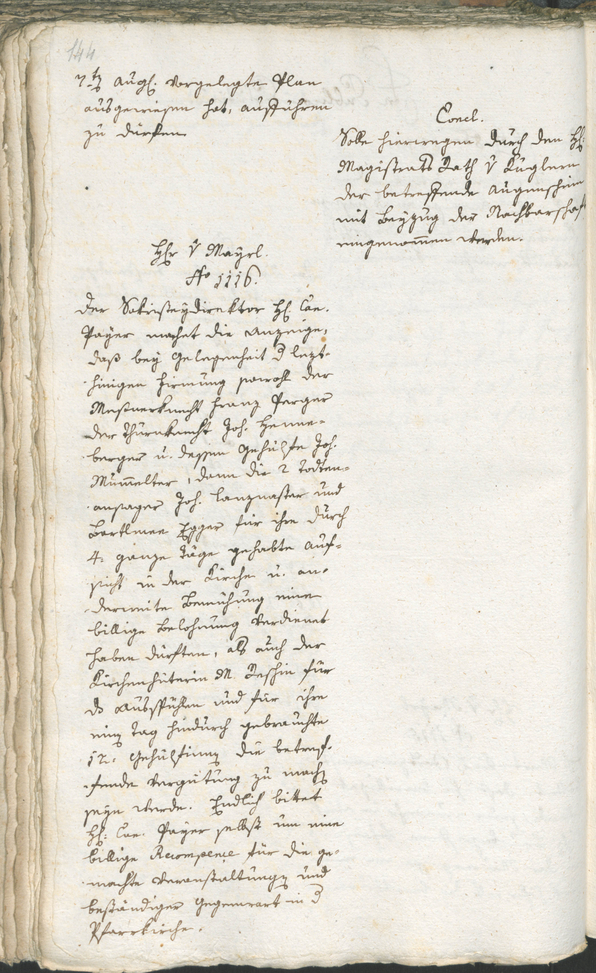 144
7ten Augs. vorgelegte Plan
ausgewiesen hat, ausführen
zu dürfen.
Concl.
Solle hierwegen durch den H:
Magistrats Rath v Kuglern
der betreffende Augenschein
mit Beyzug der Nachbarschaft
eingenommen werden.
Hr v Mayrl.
No 1116.
Der Sakristeydirektor H: Can.
Payer machet die Anzeige,
daß bey Gelegenheit d lezt-
hinigen Firmung sowohl der
Meßnerknecht Franz Perger
der Thürnknecht Joh. Henne-
berger u. dessen Gehülfe Joh.
Mummelter, dann die 2 Todten-
ansager Joh. Lanznaster und
Bartlmee Egger für ihre durch
4. ganze Täge gehabte Auf-
sicht in der Kirche u. an-
derweite Bemühung eine
billige Belohnung verdienet
haben dürften, als auch der
Kirchenhüterin M. Reschin für
ds Ausspühlen und für ihre
einen Tag hindurch gebrauchte
12. Gehülfinen die betref-
fende Vergütung zu machen
seyn werde. Endlich bittet
H: Can. Payer selbst um eine
billige Recompence für die ge-
machte Veranstaltungen und
beständiger Gegenwart in d
Pfarrkirche.